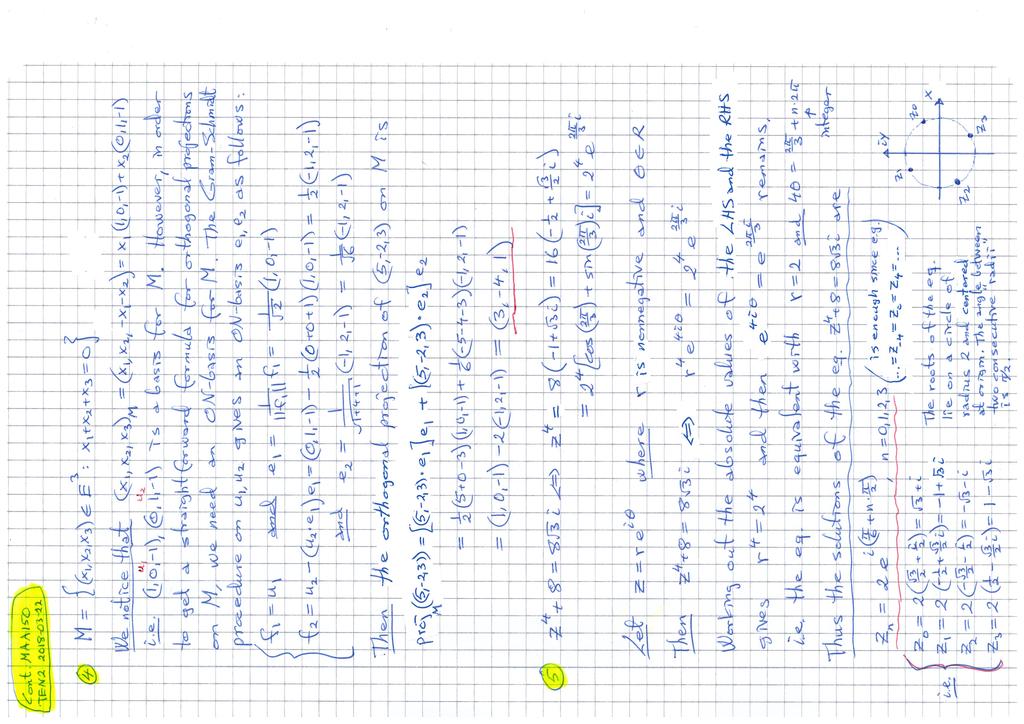 Cont. MAA150
TEN2 2018-03-22
④ M = {(x₁,x₂,x₃) ∈ E³ : x₁+x₂+x₃=0}
We notice that (x₁,x₂,x₃)_M = (x₁,x₂,-x₁-x₂) = x₁(1,0,-1)+x₂(0,1,-1)
u₁ u₂
i.e. (1,0,-1), (0,1,-1) is a basis for M. However, in order
to get a straightforward formula for orthogonal projections
on M, we need an ON-basis for M. The Gram-Schmidt
procedure on u₁,u₂ gives an ON-basis e₁,e₂ as follows:
f₁ = u₁ and e₁ = 1/||f₁|| f₁ = 1/√2 (1,0,-1)
f₂ = u₂ - (u₂·e₁)e₁ = (0,1,-1) - ½(0+0+1)(1,0,-1) = ½(-1,2,-1)
and e₂ = 1/√(1+4+1) (-1,2,-1) = 1/√6 (-1,2,-1)
Then the orthogonal projection of (5,-2,3) on M is
proj_M((5,-2,3)) = [(5,-2,3)·e₁]e₁ + [(5,-2,3)·e₂]e₂
= ½(5+0-3)(1,0,-1) + 1/6(-5-4-3)(-1,2,-1)
= (1,0,-1) - 2(-1,2,-1) = (3,-4,1)
⑤ z⁴+8 = 8√3 i ⇔ z⁴ = 8(-1+√3 i) = 16(-½ + √3/2 i)
= 2⁴[cos(2π/3) + sin(2π/3)i] = 2⁴ e^{2π/3 i}
Let z = re^{iθ} where r is nonnegative and θ ∈ R
Then z⁴+8 = 8√3 i ⇔ r⁴e^{4iθ} = 2⁴ e^{2π/3 i}
Working out the absolute values of the LHS and the RHS
gives r⁴ = 2⁴ and then e^{4iθ} = e^{2π/3 i} remains,
i.e. the eq. is equivalent with r = 2 and 4θ = 2π/3 + n·2π
integer
Thus the solutions of the eq. z⁴+8 = 8√3 i are
z_n = 2 e^{i(π/6 + n·π/2)}, n = 0,1,2,3 (is enough since e.g.
...=z₋₄ = z₀ = z₄ = ...)
i.e. z₀ = 2(√3/2 + i/2) = √3+i
z₁ = 2(-½ + √3/2 i) = -1+√3 i
z₂ = 2(-√3/2 - i/2) = -√3-i
z₃ = 2(½ - √3/2 i) = 1-√3 i
The roots of the eq.
lie on a circle of
radius 2 and centered
at origin. The "angle between
two consecutive radii"
is π/2.
iy
x
z₀
z₁
z₂
z₃